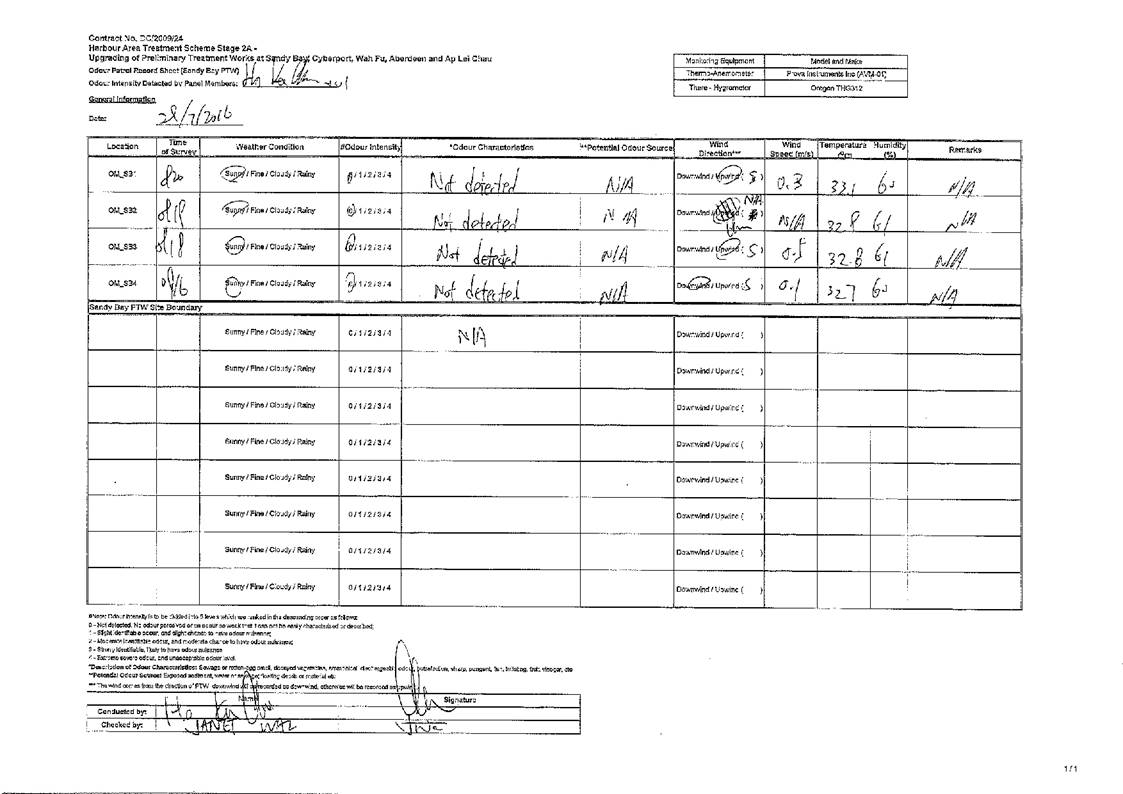 Contract No. DC/2009/24
Harbour Area Treatment Scheme Stage 2A -
Upgrading of Preliminary Treatment Works at Sandy Bay, Cyberport, Wah Fu, Aberdeen and Ap Lei Chau
Odour Patrol Record Sheet (Sandy Bay PTW)
Odour Intensity Detected by Panel Members:
General Information
Date: 28/7/2016
Monitoring Equipment Model and Make
Thermo-Anemometer Prova Instruments Inc (AVM-01)
Thermo - Hygrometer Oregon THG312
Location Time of Survey Weather Condition #Odour Intensity *Odour Characteristics **Potential Odour Source Wind Direction*** Wind Speed (m/s) Temperature Humidity (%) Remarks
OM_SB1 Sunny / Fine / Cloudy / Rainy 0 / 1 / 2 / 3 / 4 Not detected N/A Downwind / Upwind ( S ) 0.3 33.1 N/A
OM_SB2 Sunny / Fine / Cloudy / Rainy 0 / 1 / 2 / 3 / 4 Not detected N/A Downwind / Upwind ( ) N/A N/A 32.8 61 N/A
OM_SB3 Sunny / Fine / Cloudy / Rainy 0 / 1 / 2 / 3 / 4 Not detected N/A Downwind / Upwind ( S ) 0.5 32.8 61 N/A
OM_SB4 Sunny / Fine / Cloudy / Rainy 0 / 1 / 2 / 3 / 4 Not detected N/A Downwind / Upwind ( S ) 0.1 32.7 N/A
Sandy Bay PTW Site Boundary
Sunny / Fine / Cloudy / Rainy 0 / 1 / 2 / 3 / 4 N/A Downwind / Upwind ( )
Sunny / Fine / Cloudy / Rainy 0 / 1 / 2 / 3 / 4 Downwind / Upwind ( )
Sunny / Fine / Cloudy / Rainy 0 / 1 / 2 / 3 / 4 Downwind / Upwind ( )
Sunny / Fine / Cloudy / Rainy 0 / 1 / 2 / 3 / 4 Downwind / Upwind ( )
Sunny / Fine / Cloudy / Rainy 0 / 1 / 2 / 3 / 4 Downwind / Upwind ( )
Sunny / Fine / Cloudy / Rainy 0 / 1 / 2 / 3 / 4 Downwind / Upwind ( )
Sunny / Fine / Cloudy / Rainy 0 / 1 / 2 / 3 / 4 Downwind / Upwind ( )
Sunny / Fine / Cloudy / Rainy 0 / 1 / 2 / 3 / 4 Downwind / Upwind ( )
#Note: Odour intensity is to be divided into 5 levels which are ranked in the descending order as follows:
0 - Not detected. No odour perceived or an odour so weak that it can not be easily characterised or described;
1 - Slight identifiable odour, and slight chance to have odour nuisance;
2 - Moderate identifiable odour, and moderate chance to have odour nuisance;
3 - Strong identifiable, likely to have odour nuisance
4 - Extreme severe odour, and unacceptable odour level.
*Description of Odour Characteristics: Sewage or rotten-egg smell, decayed vegetables, ammonical, odour, putrefaction, sharp, pungent, fish, irritating, fruit, vinegar, etc
**Potential Odour Source: Exposed sediment, floating debris or material etc
*** The wind comes from the direction of PTW, downwind will be recorded as downwind, otherwise will be recorded as upwind
Name Signature
Conducted by: Ho
Checked by: JANET
1 / 1